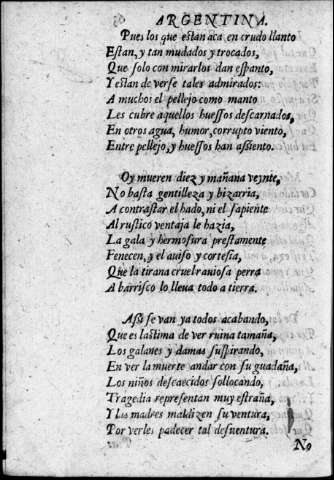 ARGENTINA.
Pues los que estan aca en crudo llanto
Estan, y tan mudados y trocados,
Que solo con mirarlos dan espanto,
Y estan de verse tales admirados:
A muchoi el pellejo como manto
Les cubre aquellos huessos descarnados,
En otros agua, humor, corrupto viento,
Entre pellejo, y huessos han assiento.
Oy mueren diez y mañana veynte,
No basta gentilleza y bizarria,
A contrastar el hado, ni el sapiente
Al rustico ventaja le hazia,
La gala y hermosura prestamente
Fenecen, y el auiso y cortesia,
Que la tirana cruel rauiosa perra
A barrisco lo lleua todo a tierra.
Assi se van ya todos acabando,
Que es lastima de ver ruina tamaña,
Los galanes y damas suspirando,
En ver la muerte andar con su guadaña,
Los niños descaecidos sollocando,
Tragedia representan muy estraña,
Y las madres maldizen su ventura,
Por verles padecer tal desuentura.
No